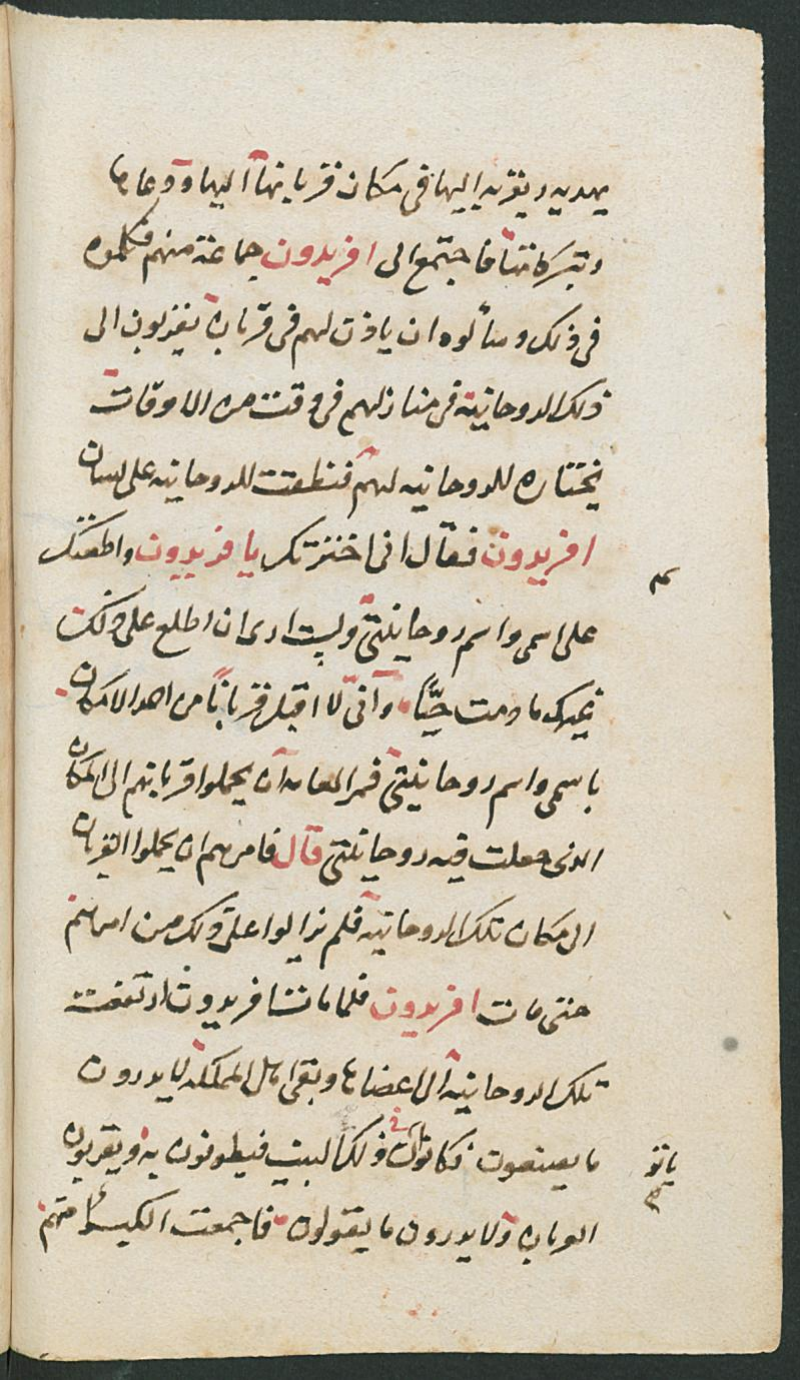 يهديه ويقربه اليها في مكان قربانها اليها ودعاها
وتبركاتها فاجتمع الى افريدون جماعة منهم فكلموه
فى ذلك وسألوه ان ياذن لهم فى قربان يقربون الى
ذلك الروحانية فى منازلهم فى وقت من الاوقات
يختاره للروحانيه لهم فنطقت الروحانيه على لسان
افريدون فقال انى اخترتك يا فريدون واطلعتك
على اسمى واسم روحانيتى ولست ارى ان اطلع على ذلك
غيرك ما دمت حيًّا وانى لا اقبل قربانًا من احد الا مكان
باسمى واسم روحانيتى فمر العامه ان يحملوا قربانهم الى المكان
الذى جعلت فيه روحانيتى قال فامرهم ان يحملوا القربان
الى مكان تلك الروحانية فلم يزالوا على ذلك من امرهم
حتى مات افريدون فلما مات افريدون ارتفعت
تلك الروحانية الى اعضاها وبقى اهل المملكة لا يدرون
ما يصنعون فكانوا فى ذلك البيت فيطوفون به ويقربون
ياتو
القربان ولا يدرون ما يقولون فاجمعت الكبراء منهم